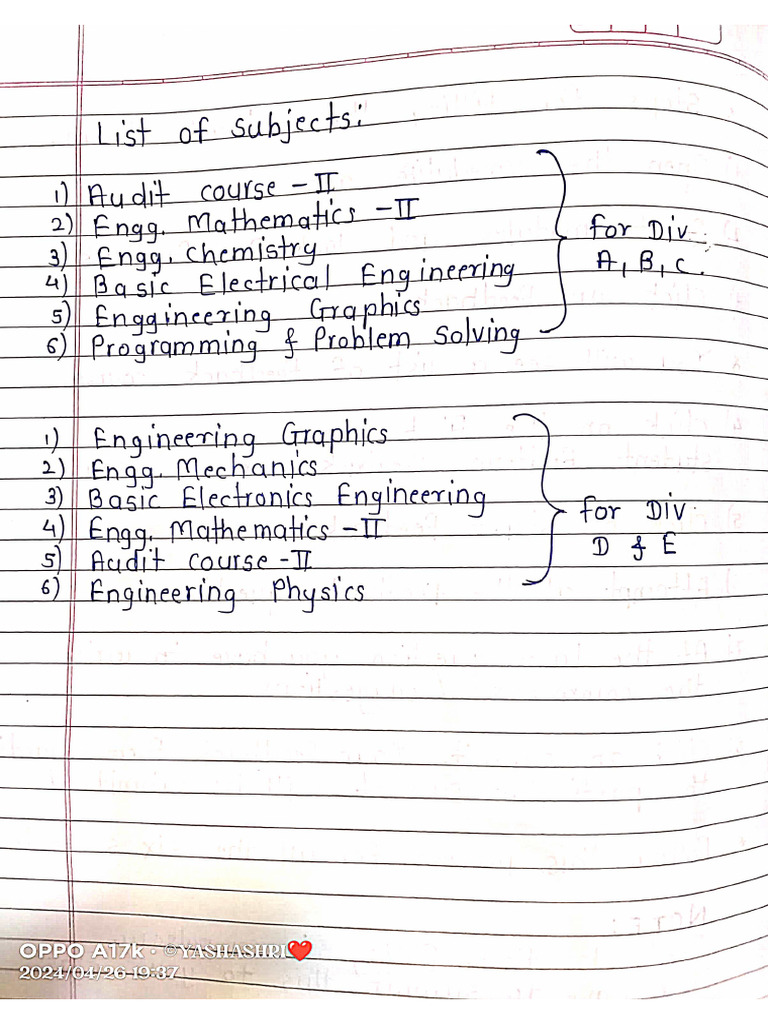 List of subjects:
1) Audit course - II
2) Engg. Mathematics - II
3) Engg. chemistry
4) Basic Electrical Engineering
5) Enggineering Graphics
6) Programming & Problem Solving
for Div.
A, B, C.
1) Engineering Graphics
2) Engg. Mechanics
3) Basic Electronics Engineering
4) Engg. Mathematics - II
5) Audit course - II
6) Engineering Physics
for Div.
D & E
OPPO A17k · ©YASHASHRI❤️
2024/04/26 19:37